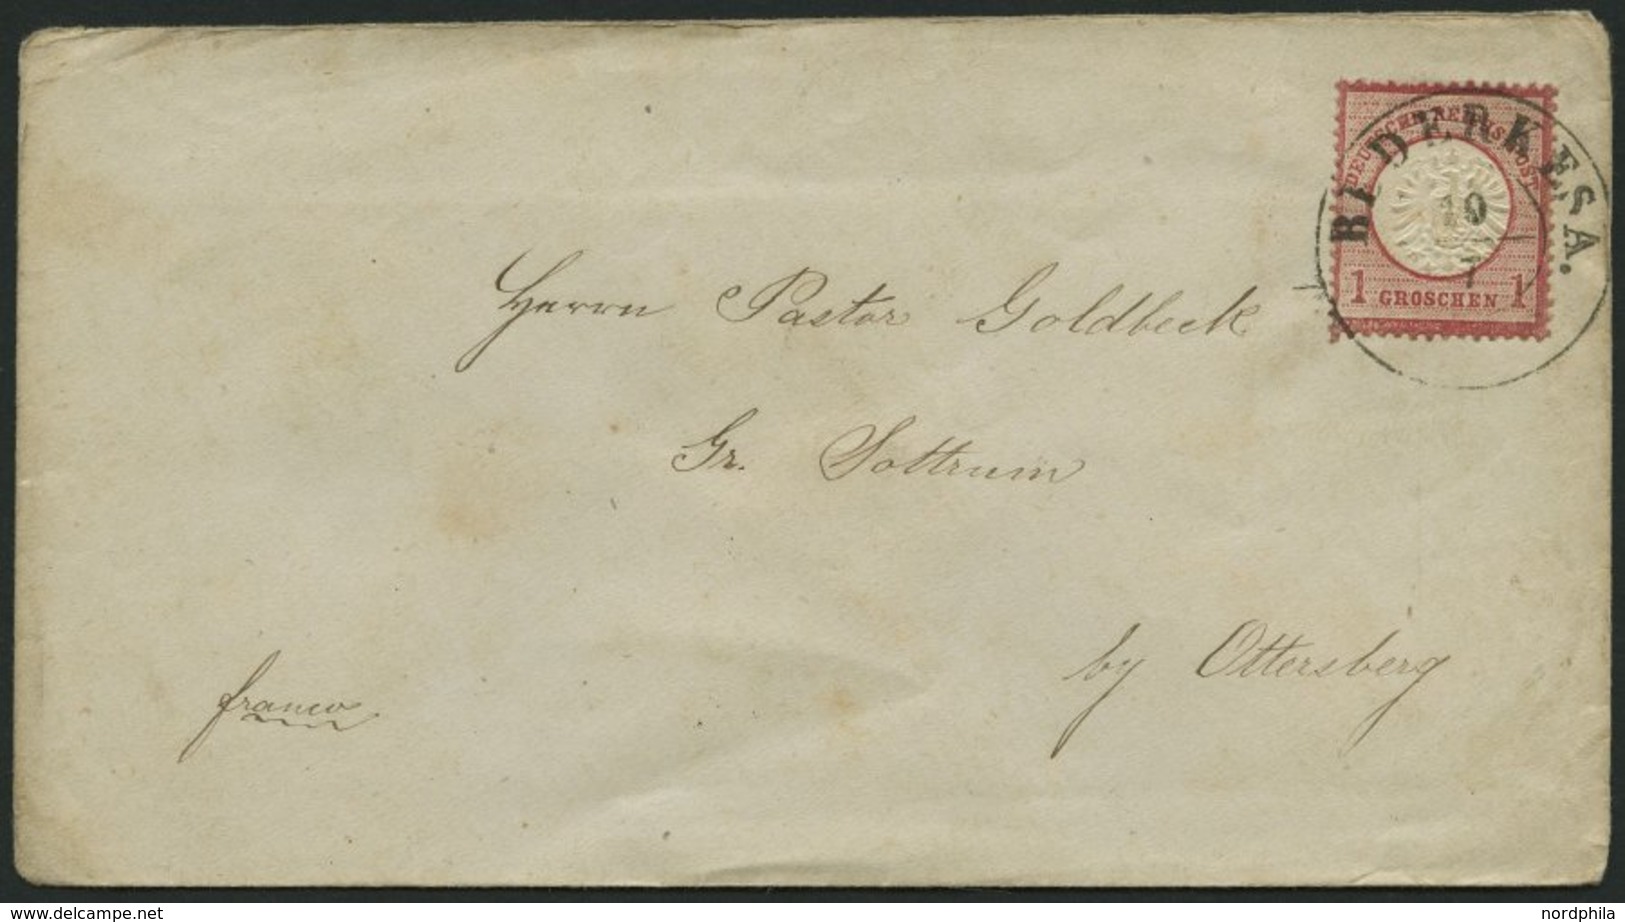 DEUTSCHE REICHS-POST
BEDERKESA.
10
7
1 GROSCHEN 1
Herrn Pastor Goldbeck
Gr. Sottrum
by Ottersberg
franco
www.delcampe.net
nordphila